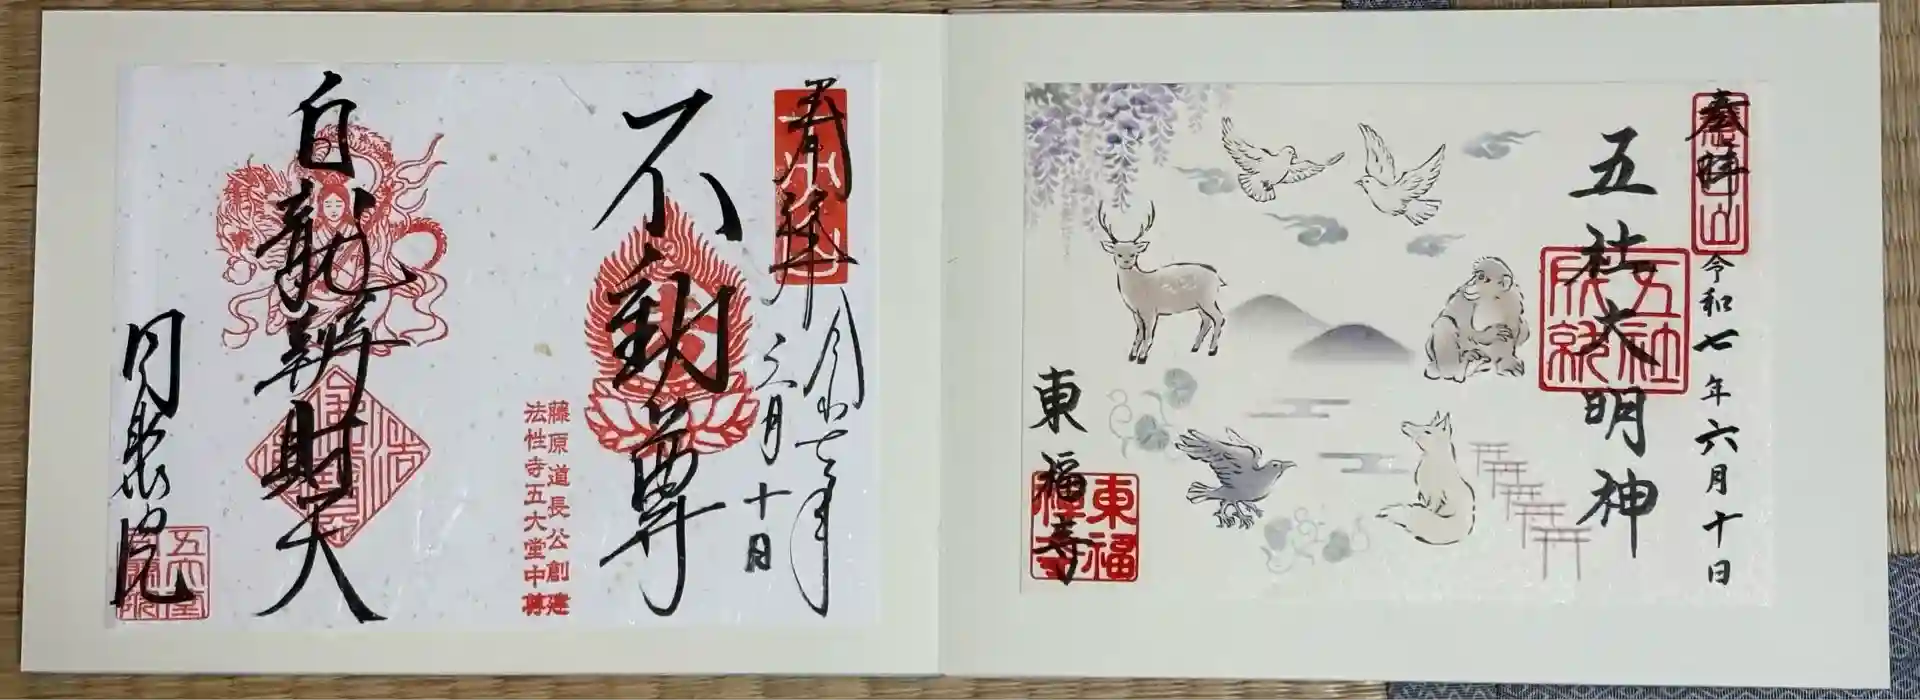 奉拝
慧日山
令和七年六月十日
五社大明神
五社成就
東福寺
東福禅寺
奉拝
令和七年
六月十日
不動尊
藤原道長公創建
法性寺五大堂中尊
白龍辨財天
同聚院
五大堂同聚院